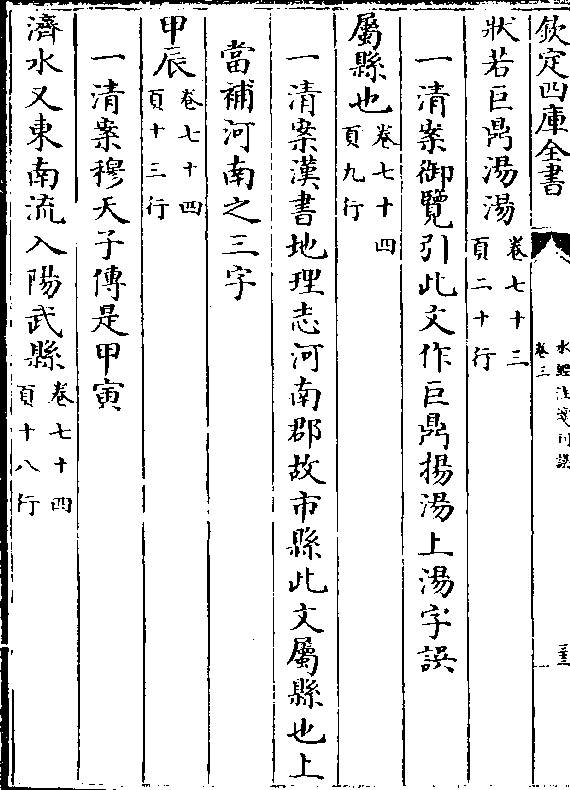 欽定四庫全書
水經注箋刊誤
卷三
狀若巨鼎湯湯卷七十三頁二十行
一清案御覽引此文作巨鼎揚湯上湯字誤
屬縣也卷七十四頁九行
一清案漢書地理志河南郡故市縣此文屬縣也上
當補河南之三字
甲辰卷七十四頁十三行
一清案穆天子傳是甲寅
濟水又東南流入陽武縣卷七十四頁十八行